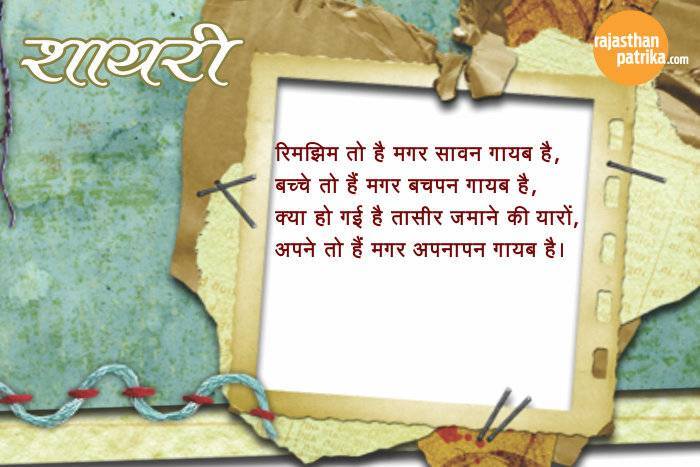 शायरी
rajasthan
patrika.com
रिमझिम तो है मगर सावन गायब है,
बच्चे तो हैं मगर बचपन गायब है,
क्या हो गई है तासीर जमाने की यारों,
अपने तो हैं मगर अपनापन गायब है।